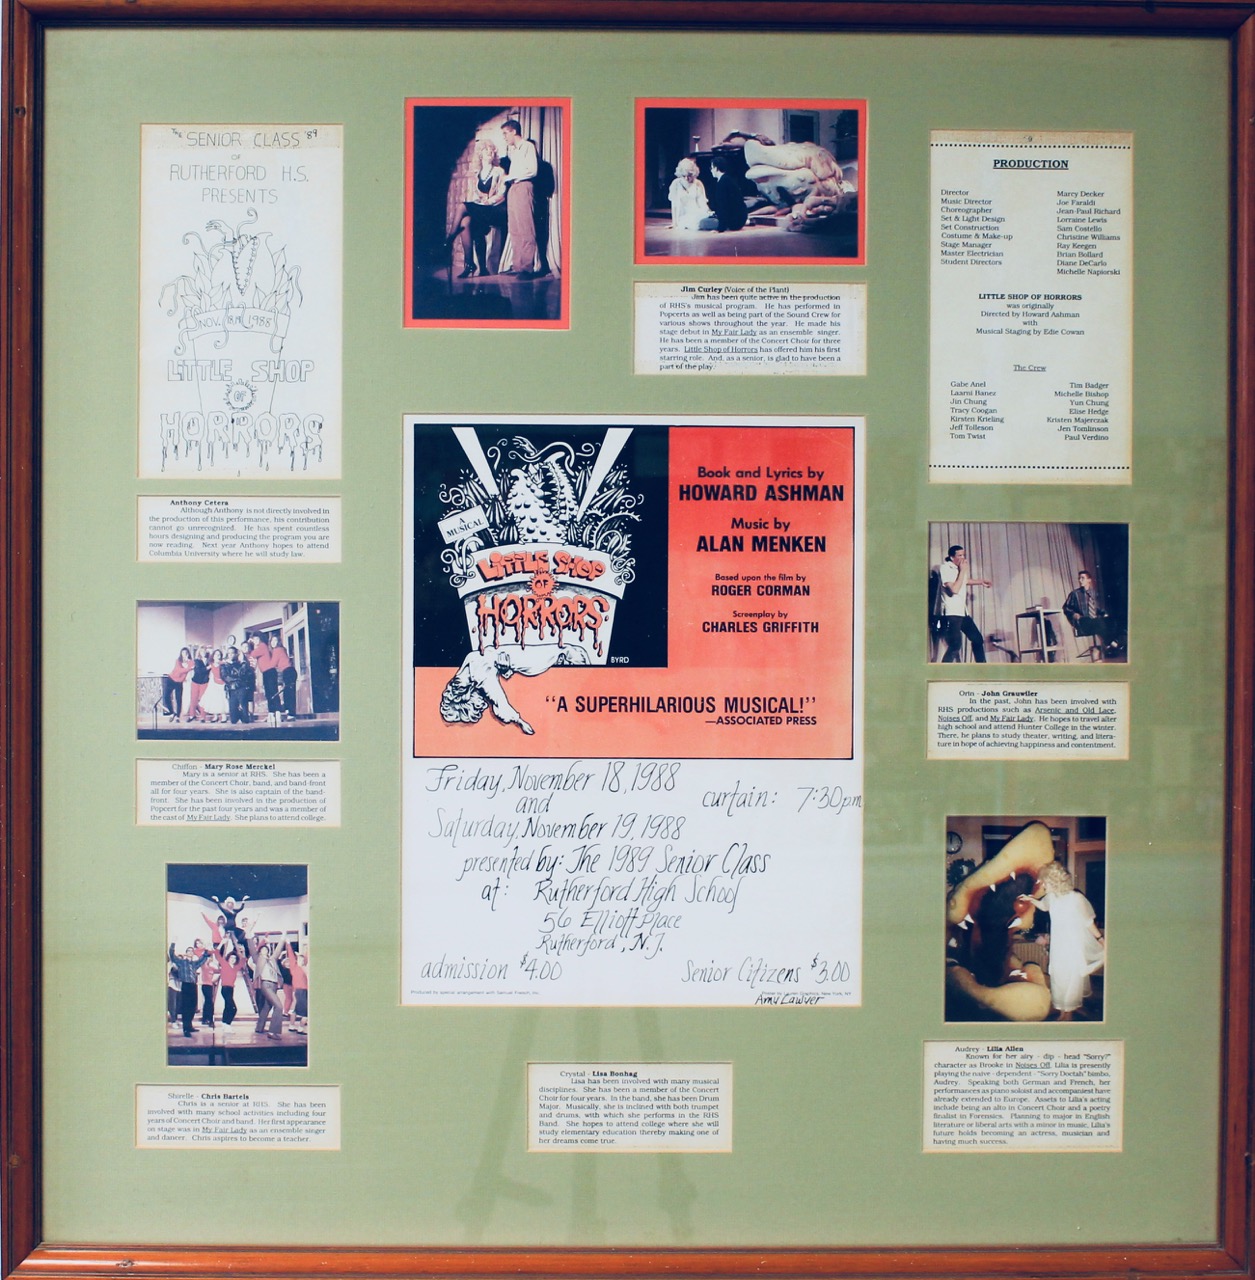 THE SENIOR CLASS '89
OF
RUTHERFORD H.S.
PRESENTS
NOV. 18,19, 1988
LITTLE SHOP
OF
HORRORS
Anthony Cetera
Although Anthony is not directly involved in
the production of this performance, his contribution
cannot go unrecognized. He has spent countless
hours designing and producing the program you are
now reading. Next year Anthony hopes to attend
Columbia University where he will study law.
Chiffon - Mary Rose Merckel
Mary is a senior at RHS. She has been a
member of the Concert Choir, band, and band-front
all for four years. She is also captain of the band-
front. She has been involved in the production of
Popcert for the past four years and was a member of
the cast of My Fair Lady. She plans to attend college.
Shirelle - Chris Bartels
Chris is a senior at RHS. She has been
involved with many school activities including four
years of Concert Choir and band. Her first appearance
on stage was in My Fair Lady as an ensemble singer
and dancer. Chris aspires to become a teacher.
Jim Curley (Voice of the Plant)
Jim has been quite active in the production
of RHS's musical program. He has performed in
Popcerts as well as being part of the Sound Crew for
various shows throughout the year. He made his
stage debut in My Fair Lady as an ensemble singer.
He has been a member of the Concert Choir for three
years. Little Shop of Horrors has offered him his first
starring role. And, as a senior, is glad to have been a
part of the play.
A
MUSICAL
LITTLE SHOP
OF
HORRORS
BYRD
Book and Lyrics by
HOWARD ASHMAN
Music by
ALAN MENKEN
Based upon the film by
ROGER CORMAN
Screenplay by
CHARLES GRIFFITH
"A SUPERHILARIOUS MUSICAL!"
—ASSOCIATED PRESS
Friday, November 18, 1988
and
curtain: 7:30pm
Saturday, November 19, 1988
presented by: The 1989 Senior Class
at: Rutherford High School
56 Elliott Place
Rutherford, N.J.
admission $4.00
Senior Citizens $3.00
Produced by special arrangement with Samuel French, Inc.
Graphics, New York, NY
Amy Lawyer
Crystal - Lisa Bonhag
Lisa has been involved with many musical
disciplines. She has been a member of the Concert
Choir for four years. In the band, she has been Drum
Major. Musically, she is inclined with both trumpet
and drums, with which she performs in the RHS
Band. She hopes to attend college where she will
study elementary education thereby making one of
her dreams come true.
PRODUCTION
Director Marcy Decker
Music Director Joe Faraldi
Choreographer Jean-Paul Richard
Set & Light Design Lorraine Lewis
Set Construction Sam Costello
Costume & Make-up Christine Williams
Stage Manager Ray Keegen
Master Electrician Brian Bollard
Student Directors Diane DeCarlo
Michelle Napiorski
LITTLE SHOP OF HORRORS
was originally
Directed by Howard Ashman
with
Musical Staging by Edie Cowan
The Crew
Gabe Anel Tim Badger
Laarni Banez Michelle Bishop
Jin Chung Yun Chung
Tracy Coogan Elise Hedge
Kirsten Krieling Kristen Majerczak
Jeff Tolleson Jen Tomlinson
Tom Twist Paul Verdino
Orin - John Grauwiler
In the past, John has been involved with
RHS productions such as Arsenic and Old Lace,
Noises Off, and My Fair Lady. He hopes to travel after
high school and attend Hunter College in the winter.
There, he plans to study theater, writing, and litera-
ture in hope of achieving happiness and contentment.
Audrey - Lilia Allen
Known for her airy - dip - head "Sorry?"
character as Brooke in Noises Off, Lilia is presently
playing the naive - dependent - "Sorry Doctah" bimbo,
Audrey. Speaking both German and French, her
performances as piano soloist and accompanist have
already extended to Europe. Assets to Lilia's acting
include being an alto in Concert Choir and a poetry
finalist in Forensics. Planning to major in English
literature or liberal arts with a minor in music, Lilia's
future holds becoming an actress, musician and
having much success.